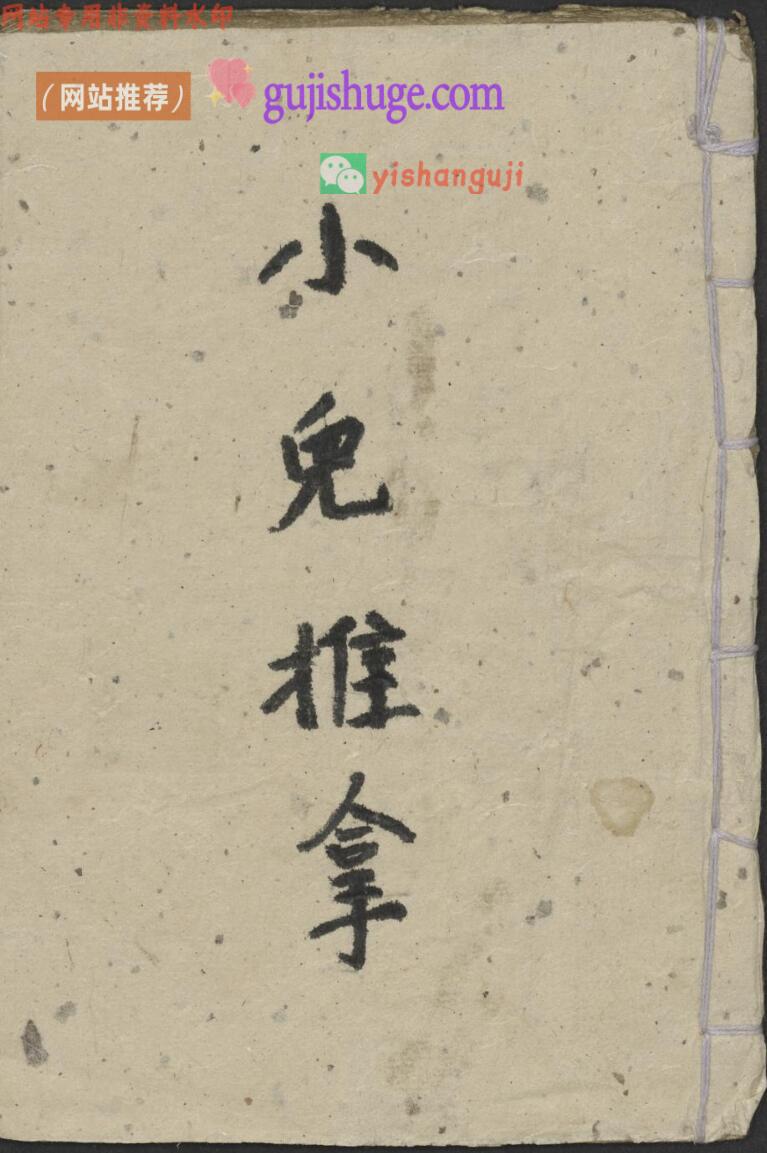 网站专用非资料水印
（网站推荐）
gujishuge.com
yishanguji
小
兒
推
拿